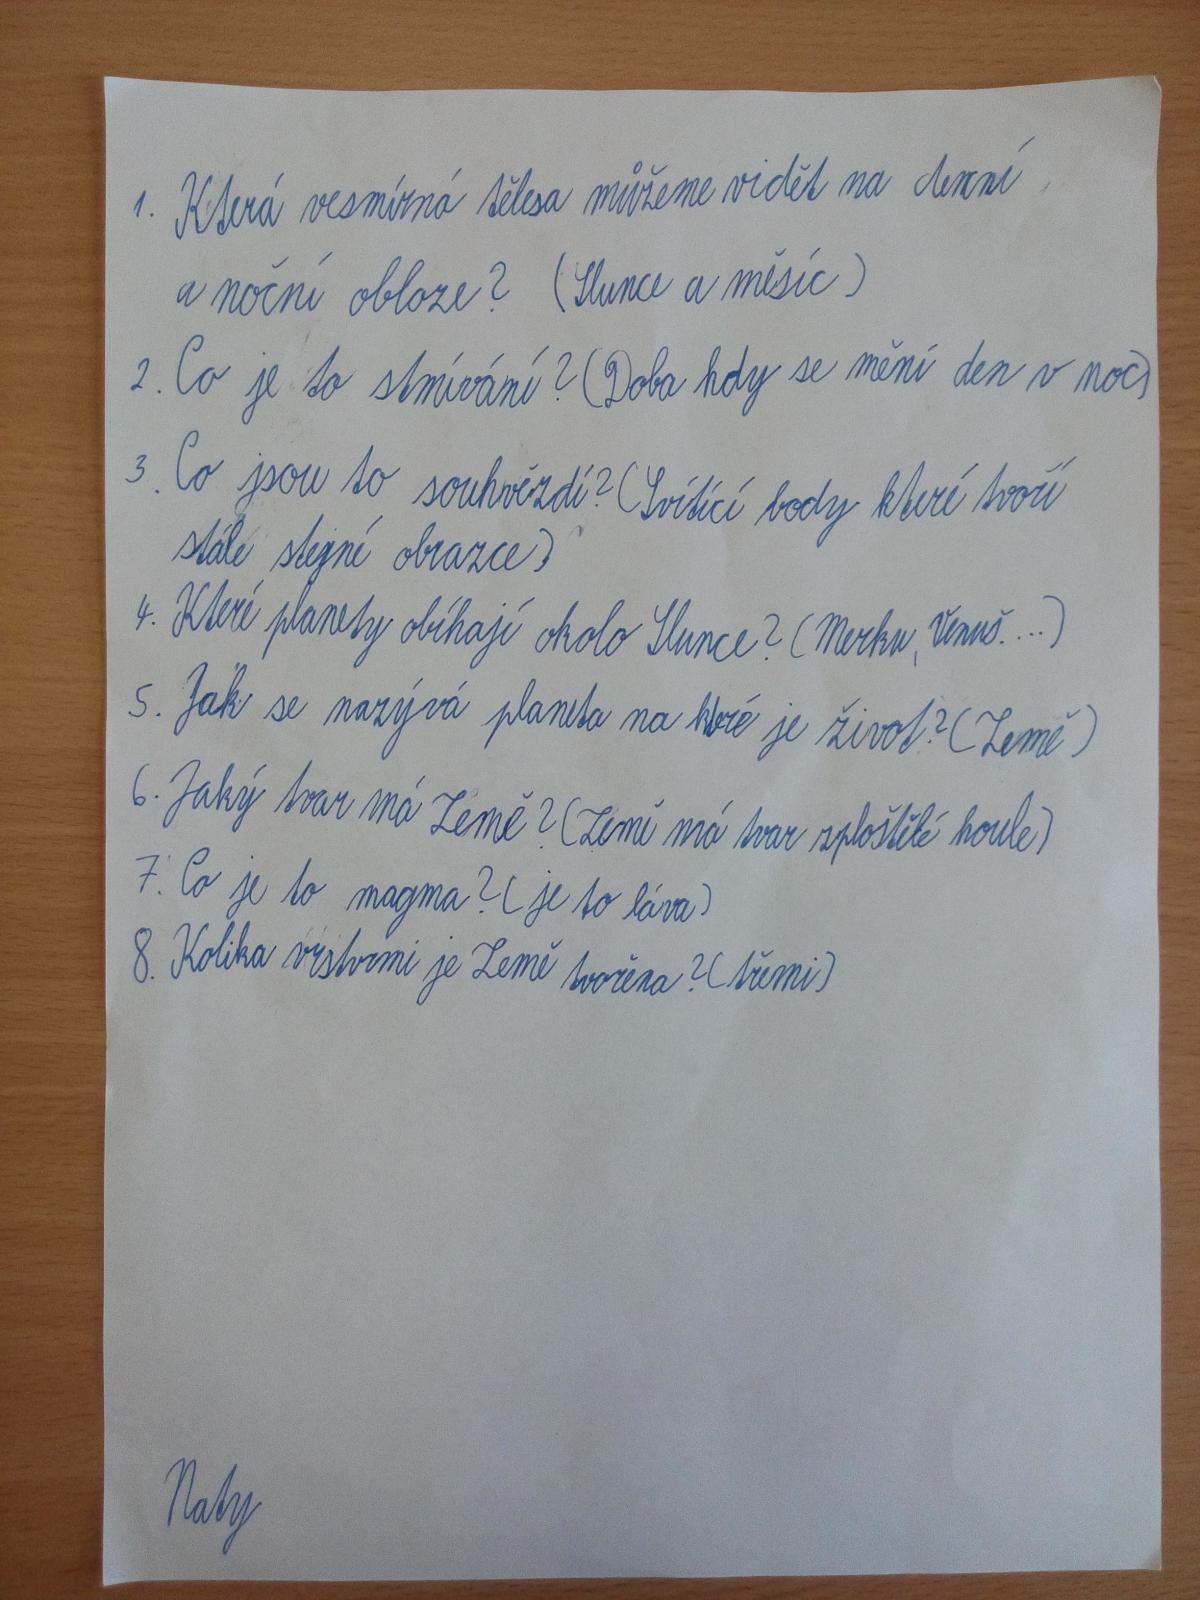 1. Která vesmírná tělesa můžeme vidět na denní
a noční obloze? (Slunce a měsíc)
2. Co je to stmívání? (Doba kdy se mění den v noc)
3. Co jsou to souhvězdí? (Svítící body které tvoří
stále stejné obrazce)
4. Které planety obíhají okolo Slunce? (Merku, Venuš....)
5. Jak se nazývá planeta na ktré je život? (Země)
6. Jaký tvar má Země? (Země má tvar zploštělé koule)
7. Co je to magma? (je to láva)
8. Kolika vrstvmi je Země tvořena? (třemi)
Naty